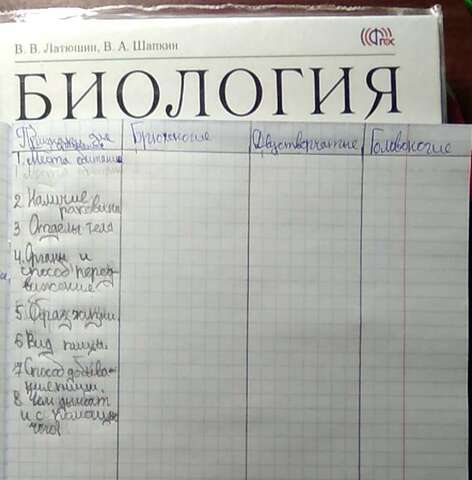 В. В. Латюшин, В. А. Шапкин
ФГОС
БИОЛОГИЯ
Брюхоногие Двустворчатые Головоногие
1. Места обитания
2 Наличие
раковины
3 Отделы тела
4. Органы и
способ перед-
вижение
5 Образ жизни.
6 Вид пищи.
7 Способ добыва-
ния пищи.
8. Чем дышат
и с помощью
чего?